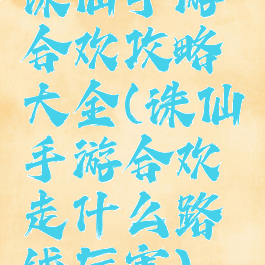 诛仙手游
合欢攻略
大全(诛仙
手游合欢
走什么路
线厉害)